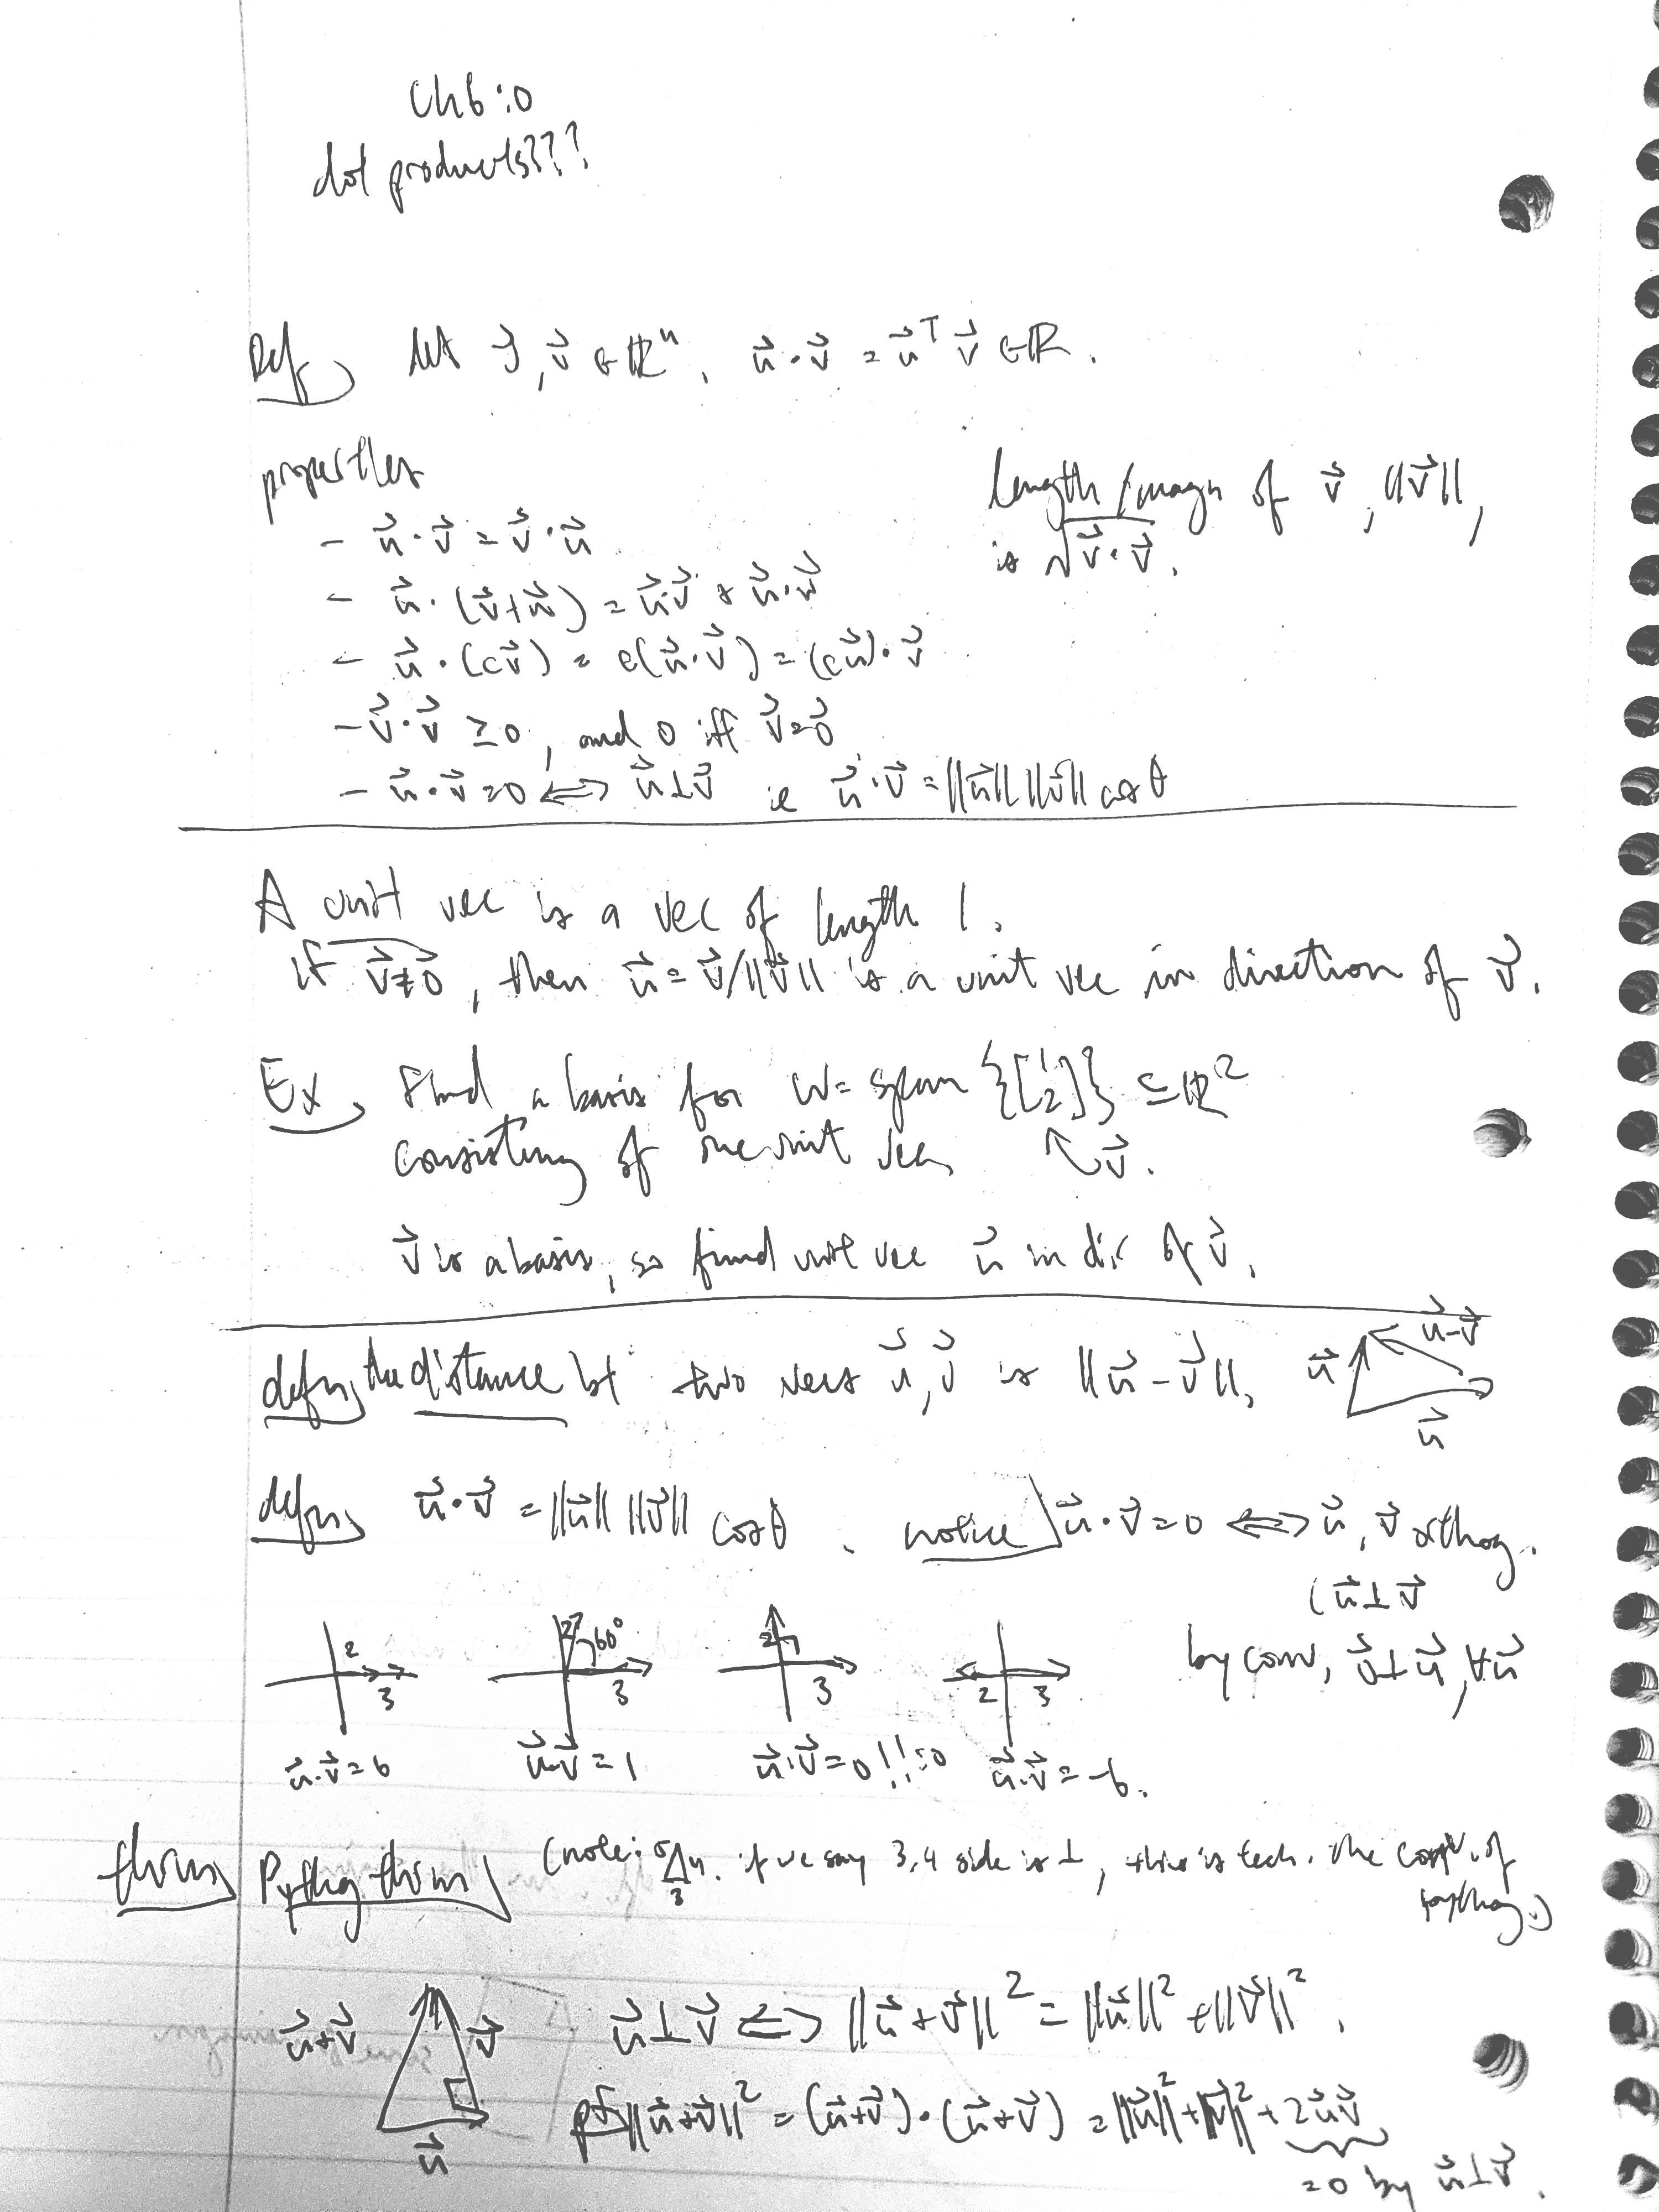 Ch6 :0
dot products???
Def, let u⃗, v⃗ ∈ ℝⁿ. u⃗·v⃗ = u⃗ᵀv⃗ ∈ ℝ.
properties
- u⃗·v⃗ = v⃗·u⃗
- u⃗·(v⃗+w⃗) = u⃗·v⃗ + u⃗·w⃗
- u⃗·(cv⃗) = c(u⃗·v⃗) = (cu⃗)·v⃗
- v⃗·v⃗ ≥ 0, and 0 iff v⃗=0⃗
- u⃗·v⃗=0 ⟺ u⃗⊥v⃗ ie u⃗·v⃗ = ||u⃗|| ||v⃗|| cos θ
length/magn of v⃗, ||v⃗||,
is √(v⃗·v⃗).
A unit vec is a vec of length 1.
if v⃗≠0⃗, then u⃗ = v⃗/||v⃗|| is a unit vec in direction of v⃗.
Ex, find a basis for W = span {[1 2]} ⊆ ℝ²
consisting of one unit vec, ↖v⃗.
v⃗ is a basis, so find unit vec u⃗ in dir of v⃗.
defn, the distance bt two vecs u⃗, v⃗ is ||u⃗-v⃗||.
u⃗-v⃗
u⃗
u⃗
defn, u⃗·v⃗ = ||u⃗|| ||v⃗|| cosθ. notice u⃗·v⃗=0 ⟺ u⃗, v⃗ orthog.
(u⃗⊥v⃗
by conv, 0⃗⊥u⃗, ∀u⃗
2 3
2 60° 3
2 3
2 3
u⃗·v⃗=6
u⃗·v⃗=1
u⃗·v⃗=0!!:o
u⃗·v⃗=-6.
thm, Pythg thm (note: 5 4 3. if we say 3,4 side is ⊥, this is tech. the conv. of
pythag.)
u⃗+v⃗ v⃗ u⃗
u⃗⊥v⃗ ⟺ ||u⃗+v⃗||² = ||u⃗||² + ||v⃗||².
pf ||u⃗+v⃗||² = (u⃗+v⃗)·(u⃗+v⃗) = ||u⃗||² + ||v⃗||² + 2u⃗v⃗
=0 by u⃗⊥v⃗.